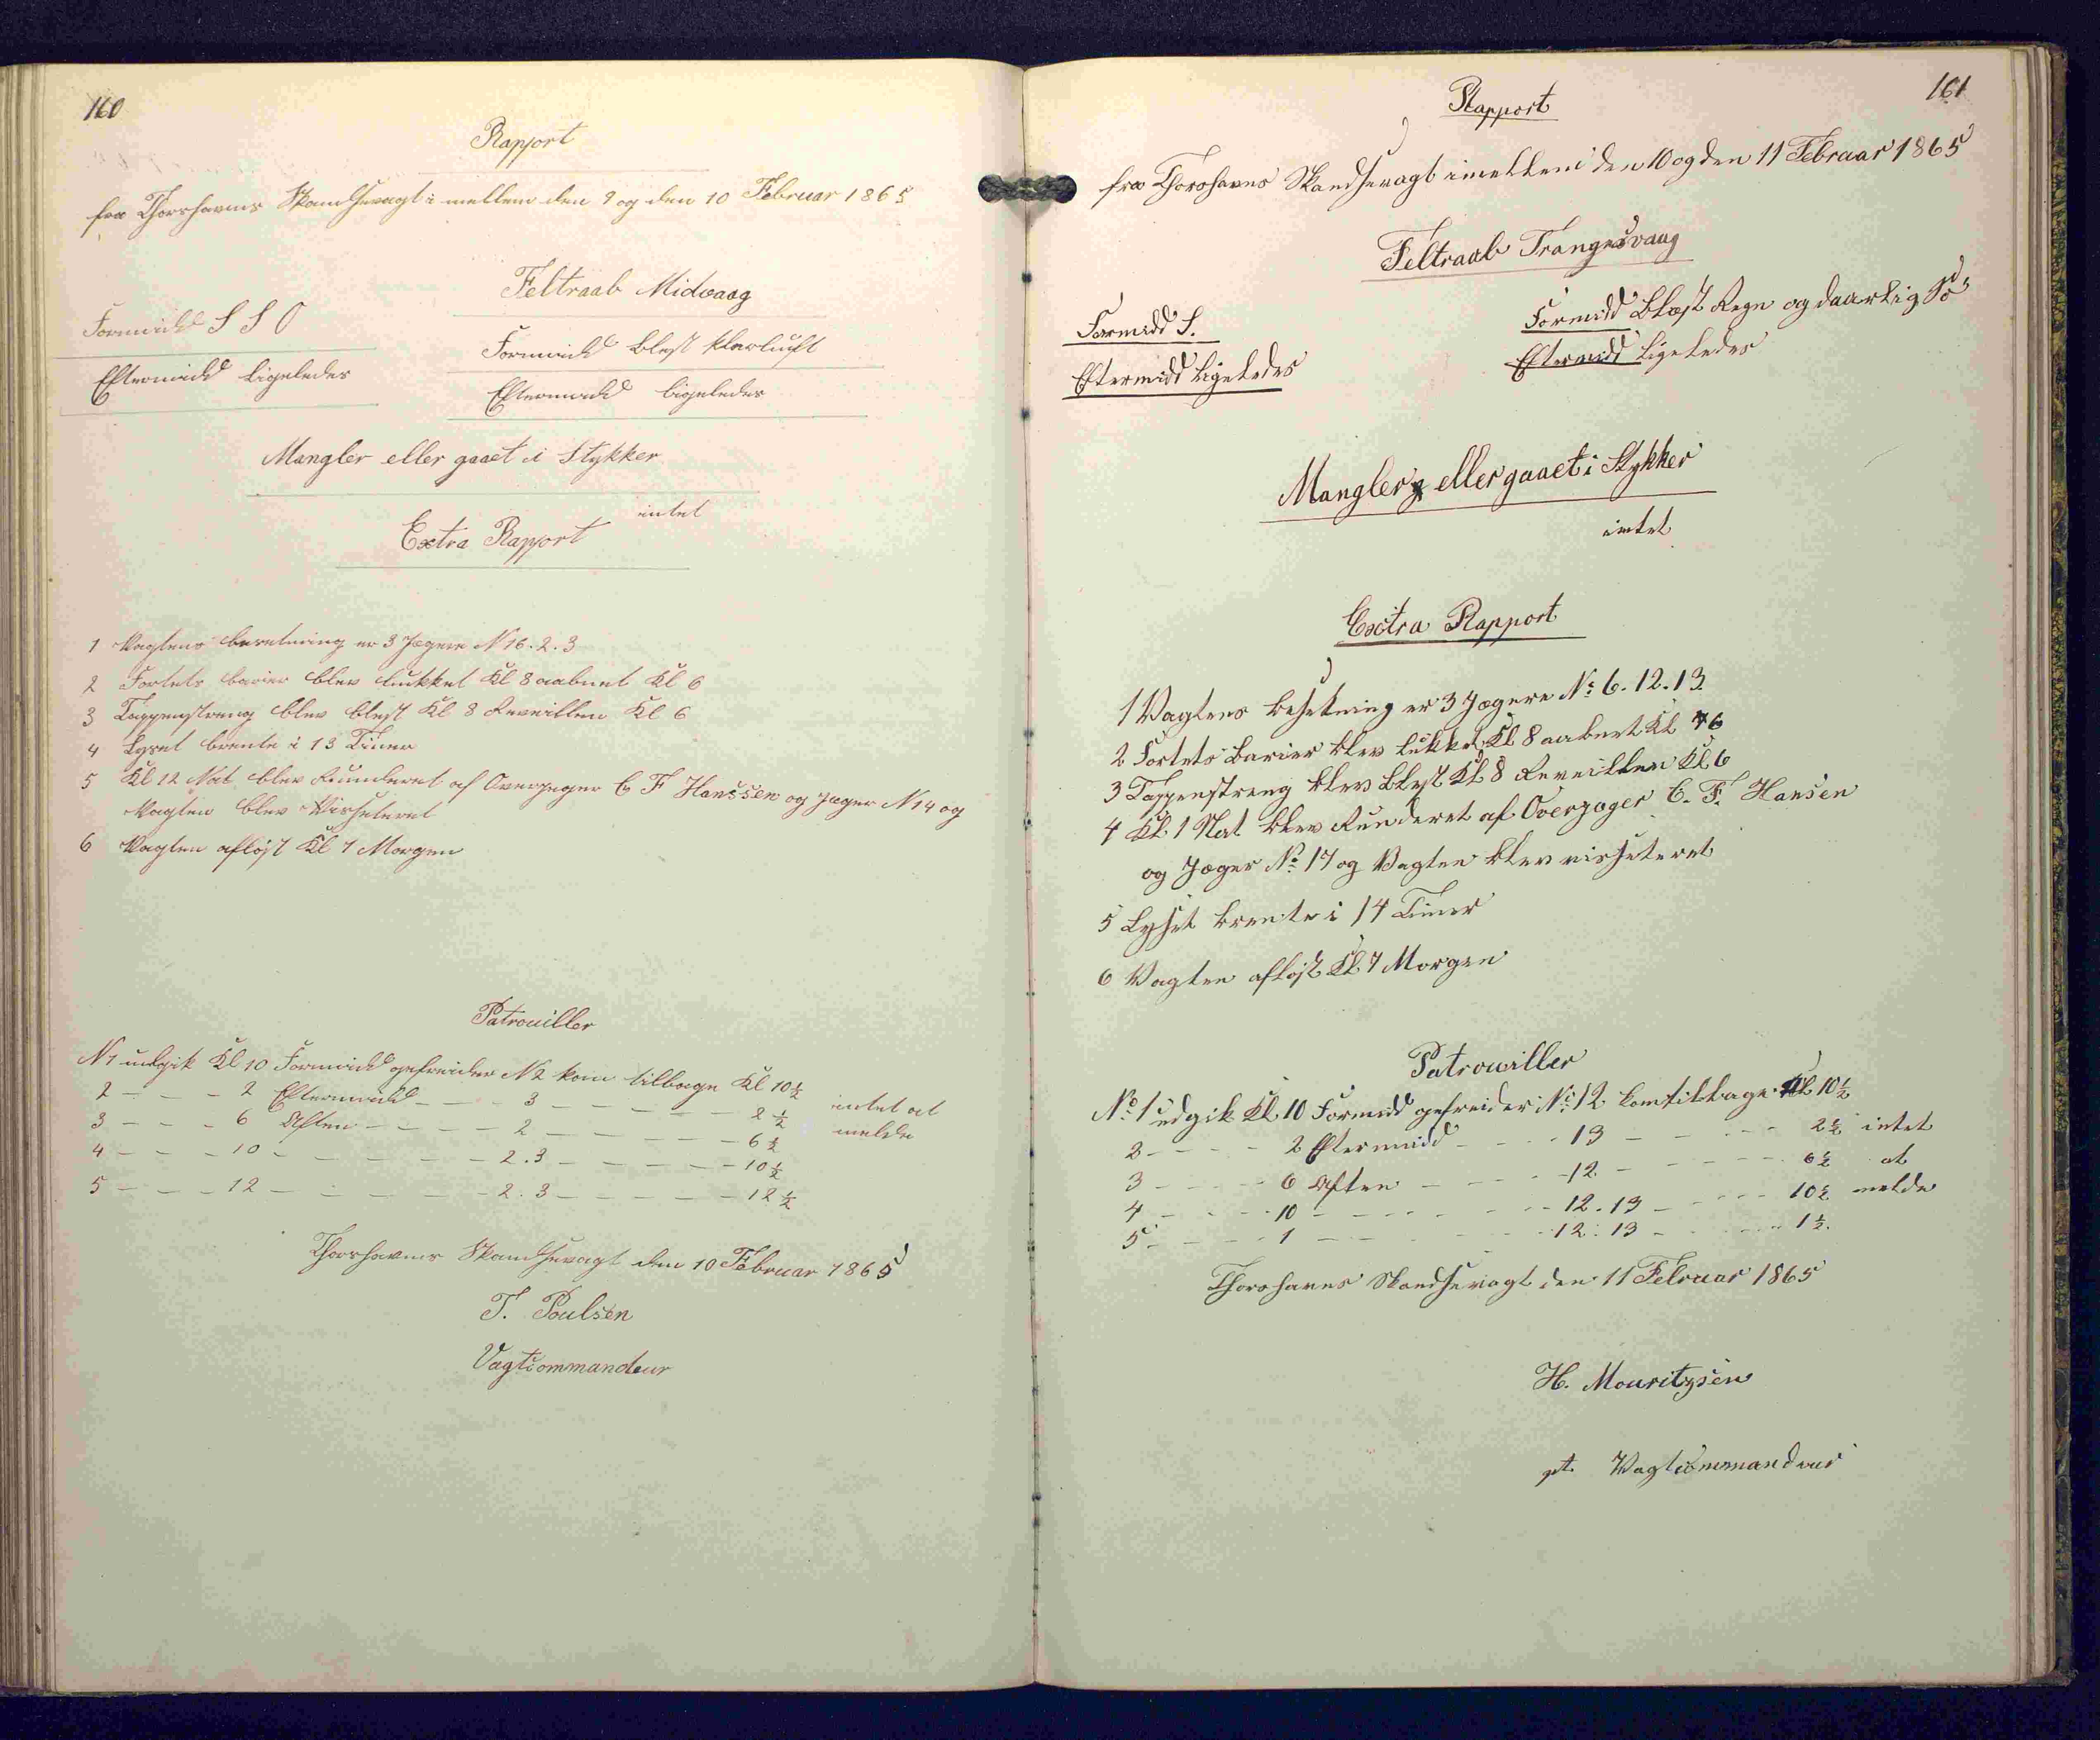 160
Rapport
fra Thorshavns Skandsevagt i mellem den 9 og den 10 Februar 1865
Feltraab Midvaag
Formidd S S O
Formidd blest klarluft
Eftermidd ligeledes
Eftermidd ligeledes
Mangler eller gaaet i Stykker
intet
Extra Rapport
1 Vagtens beretning er 3 Jægere N 16. 2. 3
2 Fortets barier blev lukket Kl 8 aabnet Kl 6
3 Tappenstreng blev blest Kl 8 Reveillen Kl 6
4 Lyset brente i 13 Timer
5 Kl 12 Nat blev Runderet af Overjæger C F Hanssen og Jæger N 14 og
Vagten blev Visseteret
6 Vagten afløst Kl 7 Morgen
Patrouiller
N 1 udgik Kl 10 Formidd gefreider N 2 kom tilbage Kl 10½
2 - - - 2 Eftermidd - - - 3 - - - - - 2½ intet at
3 - - - 6 Aften - - - - 2 - - - - - - 6½ melde
4 - - - 10 - - - - - - 2.3 - - - - - - 10½
5 - - - 12 - - - - - - 2.3 - - - - - - 12½
Thorshavns Skandsevagt den 10 Februar 1865
T. Poulsen
Vagtcommandeur
161
Rapport
fra Thorshavns Skandsevagt imellem den 10 og den 11 Februar 1865
Feltraab Trangesvaag
Formidd S.
Formidd Blæst Regn og daarlig Sø
Eftermidd ligeledes
Eftermidd ligeledes
Mangler eller gaaet i Stykker
intet
Extra Rapport
1 Vagtens besetning er 3 Jægere No 6. 12. 13
2 Fortets Barier blev lukket Kl 8 aabnet Kl 6
3 Tappenstreng blev blest Kl 8 Reveillen Kl 6
4 Kl 1 Nat blev Runderet af Overjæger C. F. Hansen
og Jæger No 17 og Vagten blev visseteret
5 Lyset brente i 14 Timer
6 Vagten afløst Kl 7 Morgen
Patrouiller
No 1 udgik Kl 10 Formidd gefreider No 12 kom tilbage Kl 10½
2 - - - - 2 Eftermidd - - - 13 - - - - - 2½ intet
3 - - - - 6 Aften - - - - 12 - - - - - 6½ at
4 - - - - 10 - - - - - - 12. 13 - - - - 10½ melde
5 - - - - 1 - - - - - - 12. 13 - - - - 1½.
Thorshavns Skandsevagt den 11 Februar 1865
H. Mouritzsen
pt. Vagtcommandeur